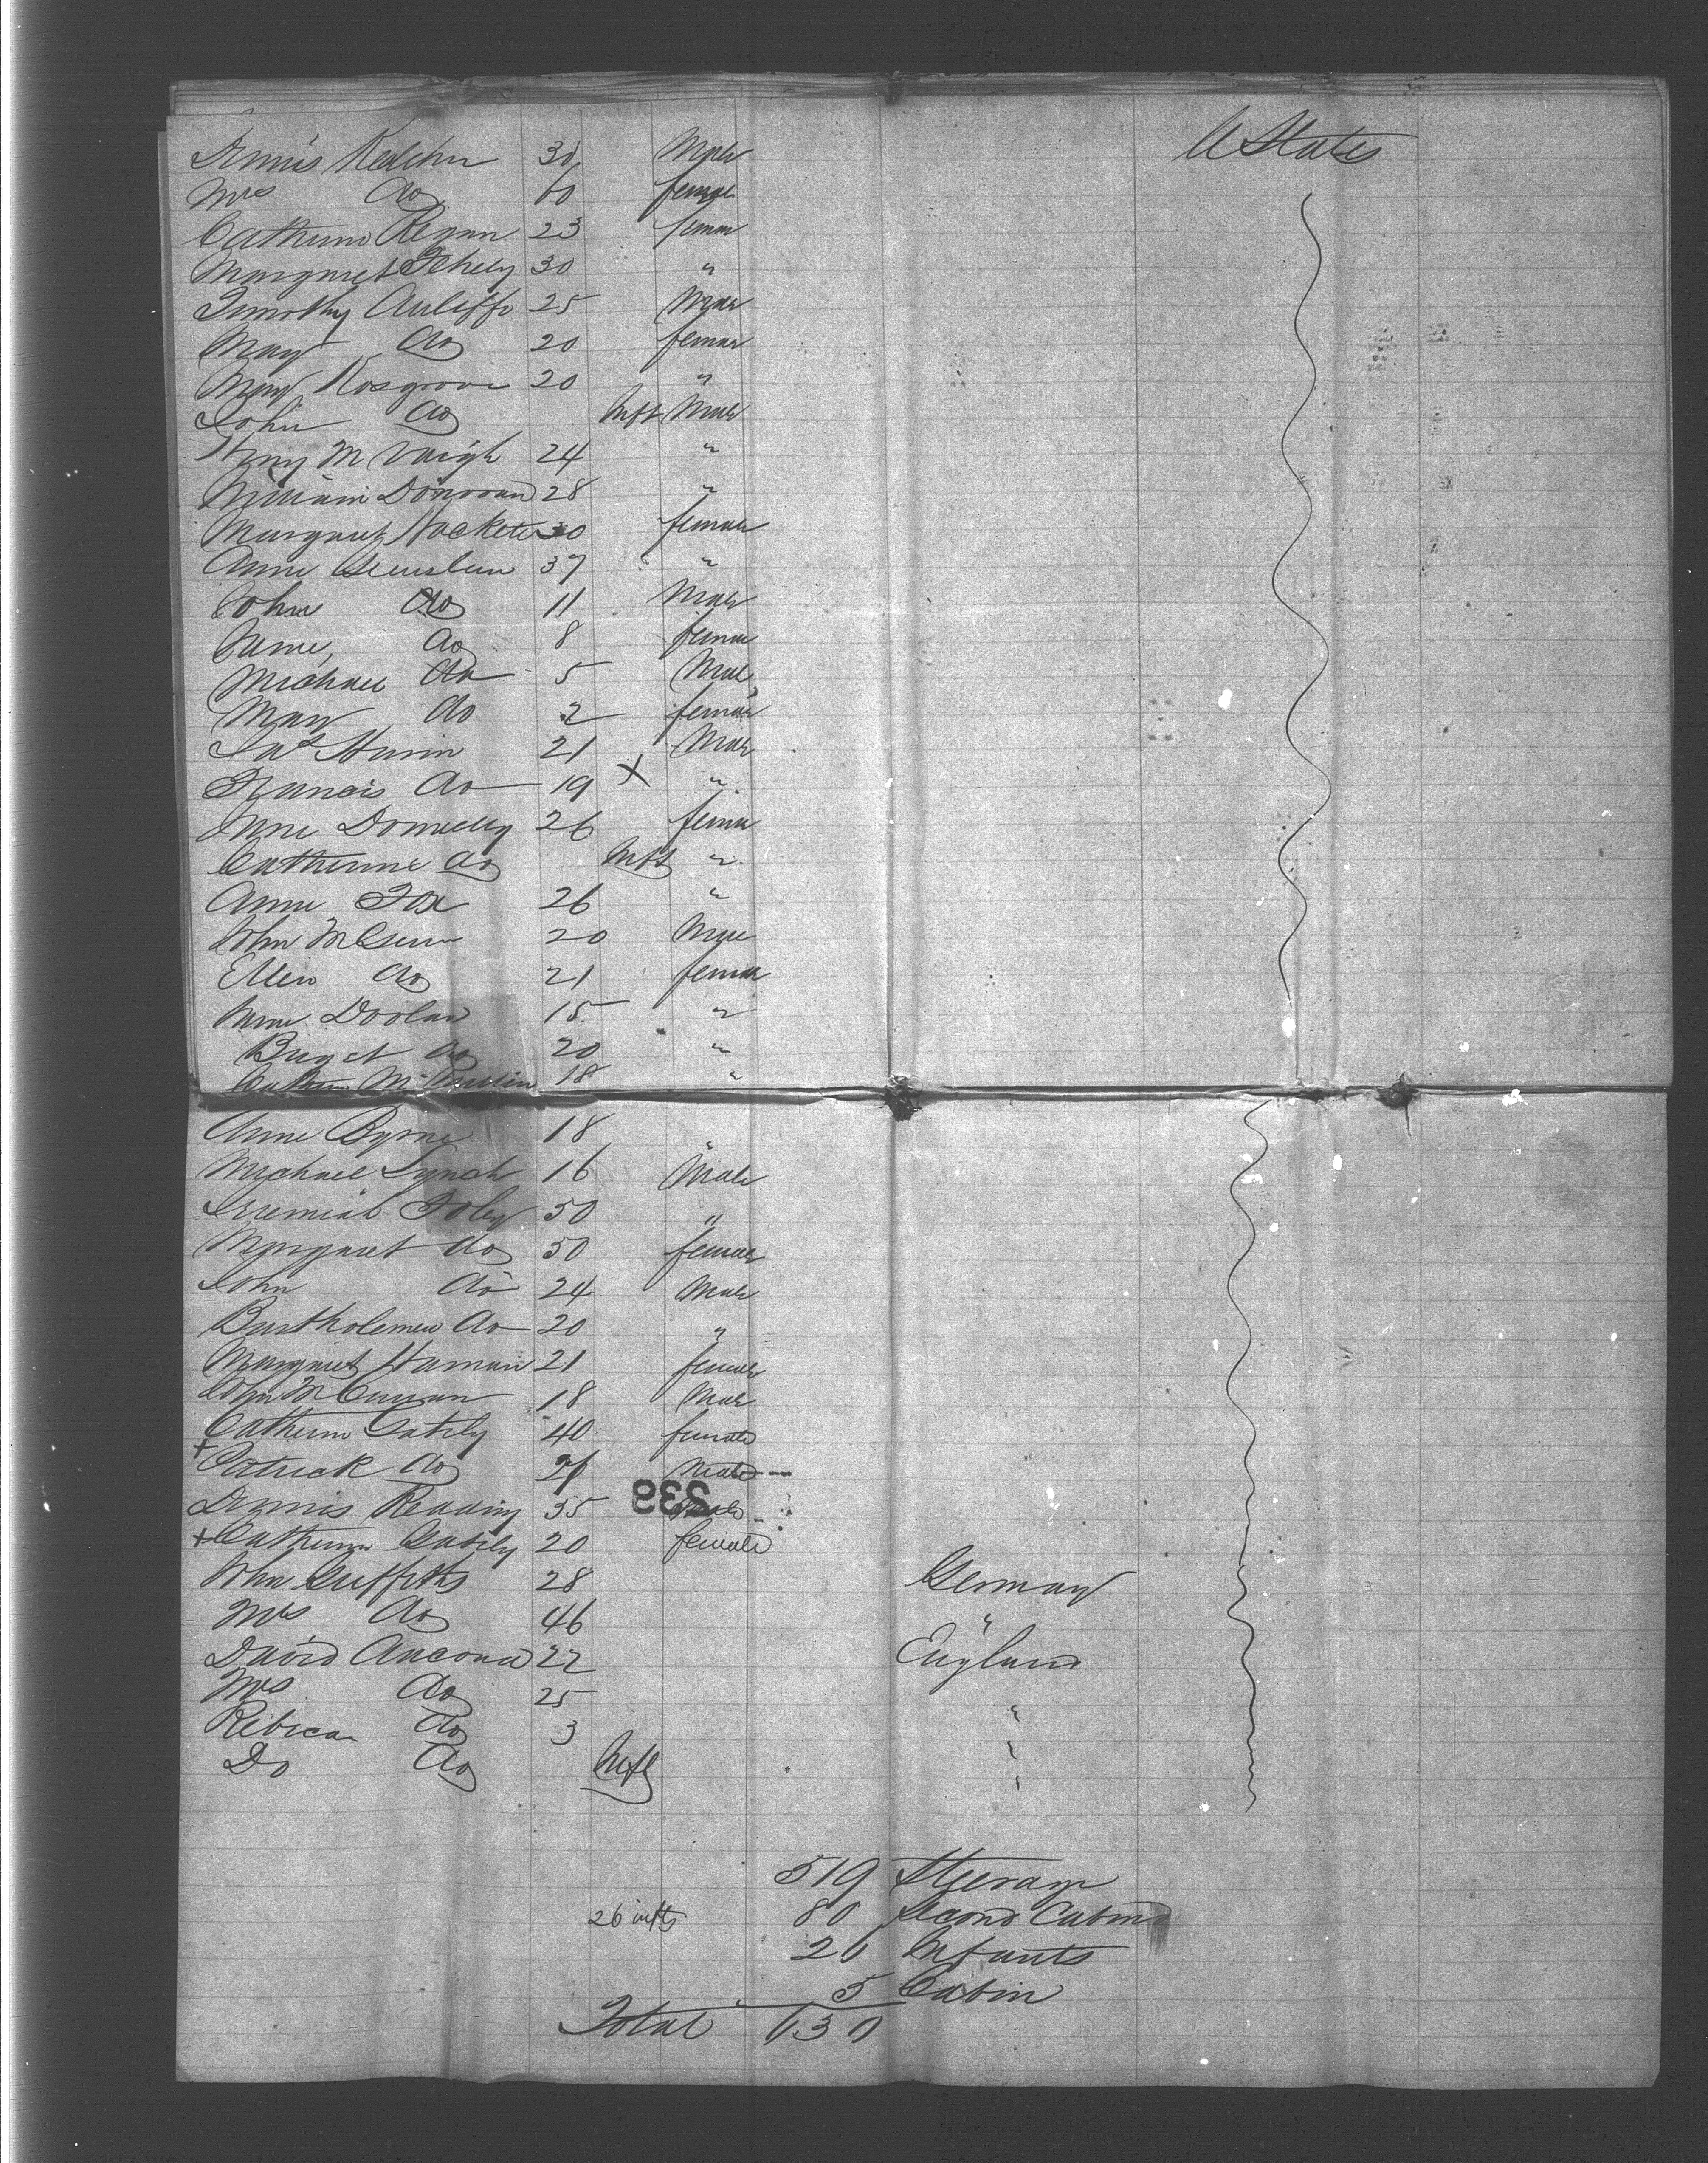 U States
Dennis 30 Male
Mrs do 60 female
Catherine Regan 23 female
Margaret 30 "
Timothy Auliffe 25 Male
Mary do 20 female
Mary Rosgrove 20 "
John do Inft Male
24 "
William Donovan 28 "
Margaret Hackett 30 female
Anne 37 "
John do 11 Male
Jane do 8 female
Michael do 5 Male
Mary do 2 female
Jas 21 Male
Francis do 19 X "
Jane Donnelly 26 female
Catherine do Inft "
Anne Fox 26 "
John 20 Male
Ellen do 21 female
Doolan 15 "
do 20 "
18 "
Anne Byrne 18 "
Michael Lynch 16 Male
Jeremiah Foley 50 "
Margaret do 50 female
John do 24 Male
Bartholemew do 20 "
Margaret Hannan 21 female
John 18 Male
Catherine Gately 40 female
+ Patrick do Male
Dennis Reading 35 Male
239
+ Catherine Gately 20 female
John Griffiths 28 Germany
Mrs do 46 "
David Ancona 22 England
Mrs do 25 "
Rebecca do 3 "
Do do Inft "
519 Steerage
26 infts 80 Second Cabin
26 Infants
5 Cabin
Total 630